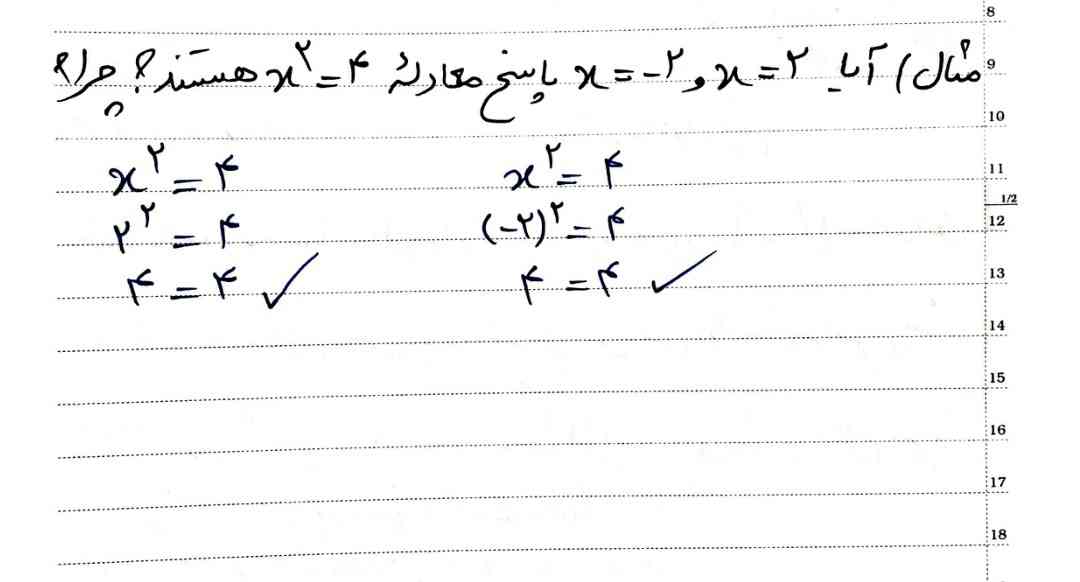 8
مثال) آیا x = ۲ و x = -۲ پاسخ معادلهٔ x^۲ = ۴ هستند؟ چرا؟ 9
10
x^۲ = ۴ x^۲ = ۴ 11
1/2
۲^۲ = ۴ (-۲)^۲ = ۴ 12
۴ = ۴ ✓ ۴ = ۴ ✓ 13
14
15
16
17
18